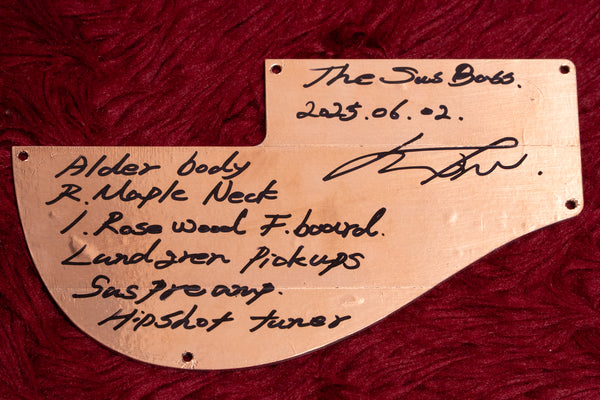 The Sus Bass.
2025.06.02.
Alder body
R. Maple Neck
I. Rose wood F. board.
Lundgren Pickups
Sus preamp.
Hipshot tuner